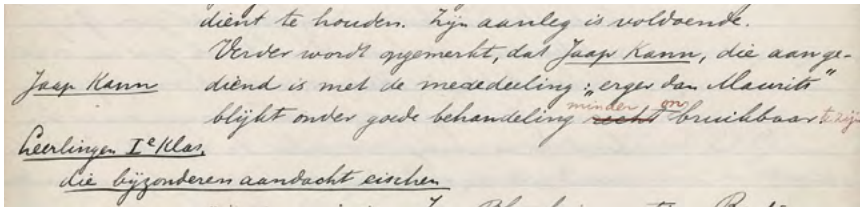 dient te houden. Zijn aanleg is voldoende.
Verder wordt opgemerkt, dat Jaap Kann, die aange-
Jaap Kann diend is met de mededeeling: „erger dan Maurits"
blijkt onder goede behandeling recht minder on bruikbaar te zijn
Leerlingen Iᵉ Klas,
die bijzonderen aandacht eischen